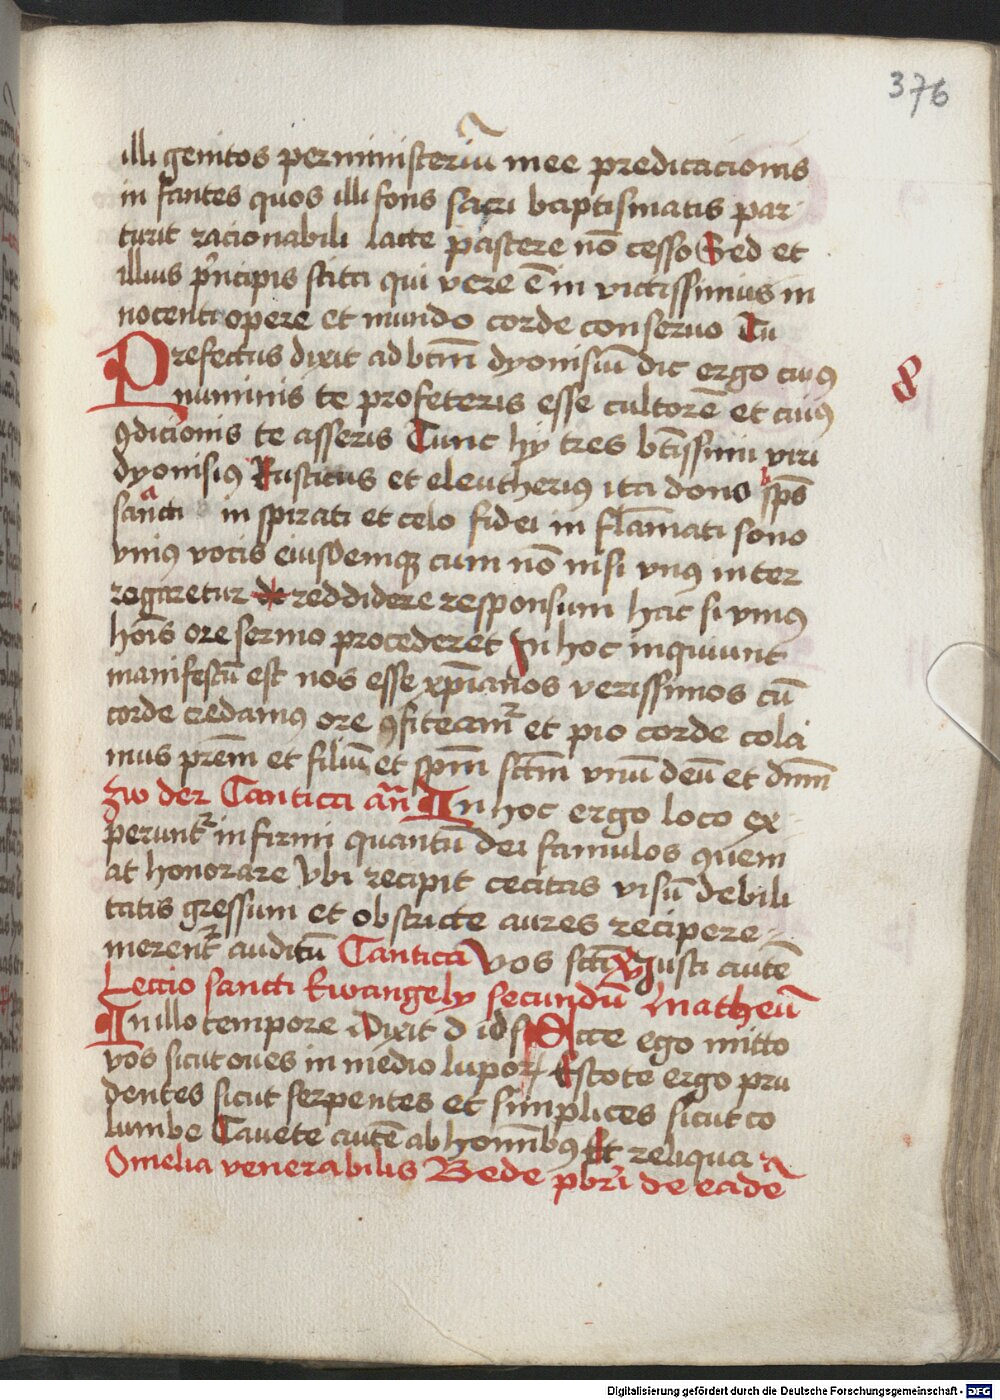 376
illi genitos per ministeriū mee predicacionis
in fantes quos illi fons sacri baptismatis par
turit racionabili lacte pastere nō cesso Sed et
illius pͥncipis scita qui vere ē in victissimus in
nocenti opere et mundo corde conseruo Tu
Prefectus dixit ad btm̄ dyonisiū dic ergo cuiꝯ
numinis te profeteris esse cultorē et cuiꝯ
8
ꝯdicionis te asseris Tunc hy tres btīssimi viri
dyonisiꝯ Rusticus et eleutheriꝯ ita dono sp̄s
sancti in spirati et celo fidei in flāmati sono
vniꝯ vocis eiusdemqꝫ cum nō nisi vnꝯ inter
rogaretur reddidere responsum hac si vniꝯ
hoīs ore sermo procederet In hoc inquiunt
manifestū est nos esse xp̄ianos verissimos cū
corde credamꝯ ore ꝯfiteamr̄ et pio corde cola
mus prēm et filiū et spm̄ sctm̄ vnū deū et dnm̄
Zw der Cantica an̄ In hoc ergo loco ex
periunt̄ in firmi quantū dei famulos quem
at honorare Vbi recipit cecitas visū debili
tatis gressum et obstricte aures recipere
merent̄ auditū Cantica Vos sctī XI Iusti autē
Leccio sancti Ewangely secundū Matheū
In illo tempore Dixit d ids Ecce ego mitto
vos sicut oues in medio lupoꝝ Estote ergo pru
dentes sicut serpentes et simplices sicut co
lumbe Cauete autē ab homībꝯ Et reliqua
Omelia venerabilis Bede pbrī de eadē
Digitalisierung gefördert durch die Deutsche Forschungsgemeinschaft - DFG